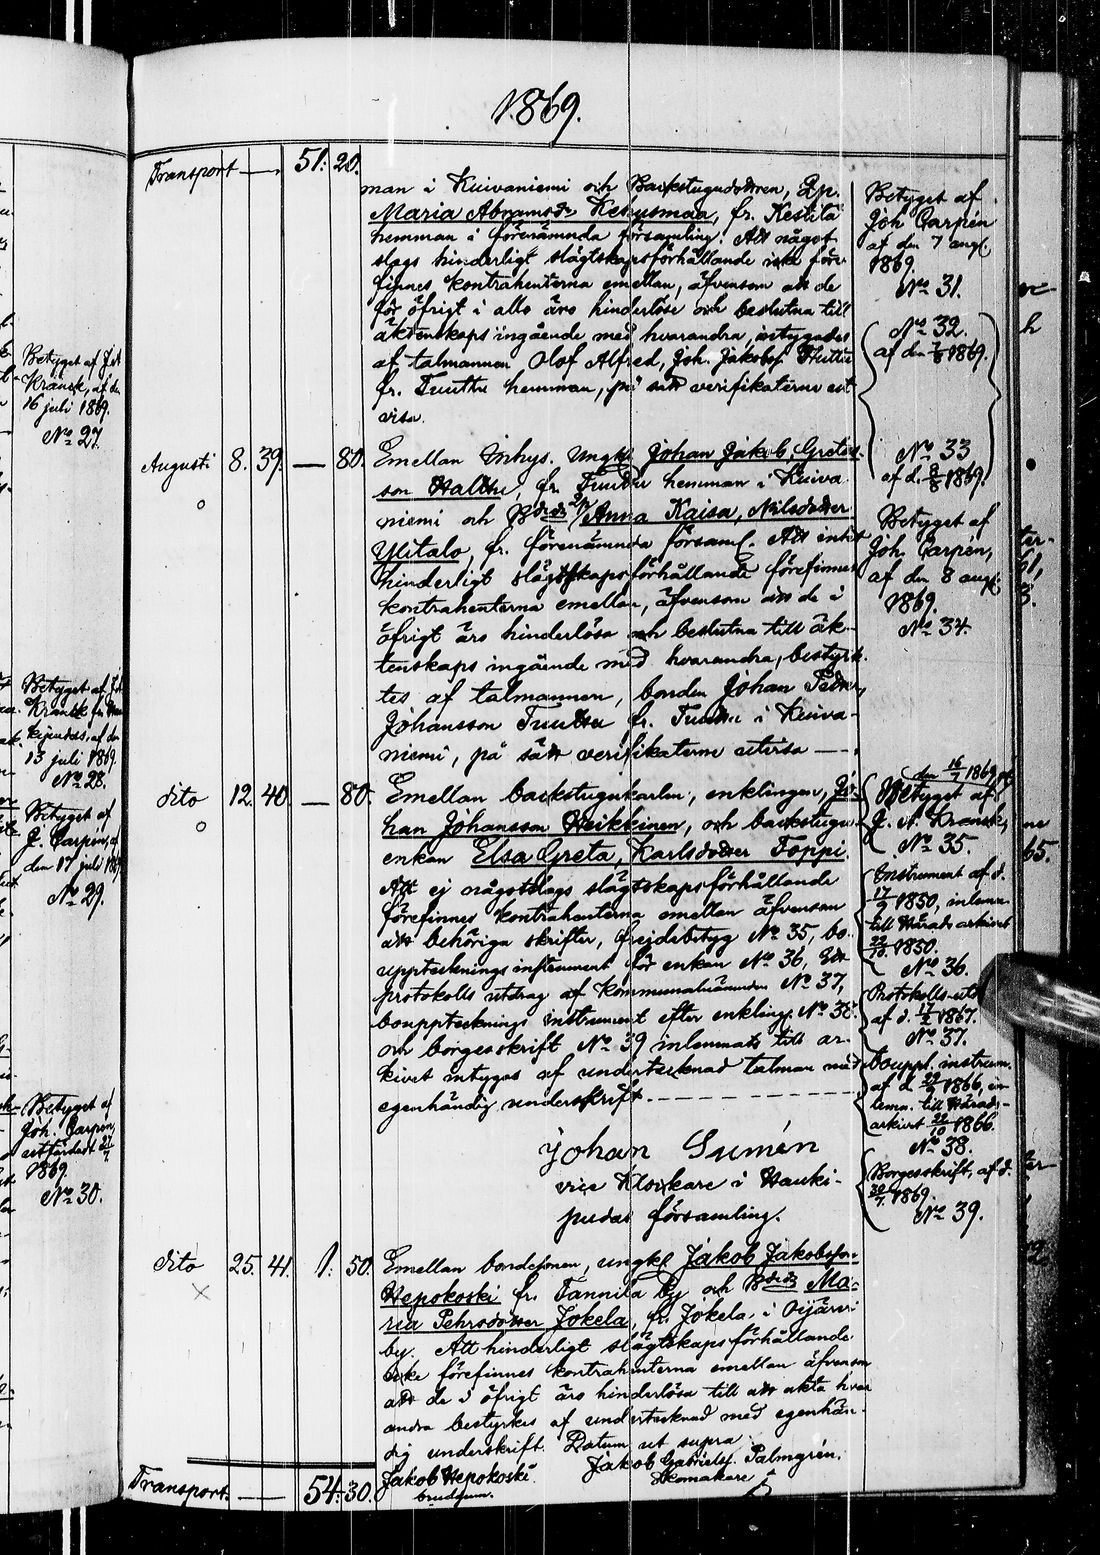 1869.
Transport — 51: 20.
man i Kuivaniemi och Backstugudottren, Pn.
Maria Abramsdr, fr. Kestilä
hemman i förenämnda församling. Att något
slags hinderligt slägtskapsförhållande icke före-
finnes kontrahenterna emellan, äfvensom att de
för öfrigt i allo äro hinderlösa och beslutna till
äktenskaps ingående med hvarandra, intygades
af talmannen Olof Alfred, Joh. Jakobsf Huttu
fr. Tuuttu hemman, på sätt verifikaterna ut
visa.
Betyget af
Joh Carpén
af den 7 aug.
1869.
No 31.
No 32.
af den 7/8 1869.
No 33
af d. 8/8 1869.
Augusti 8. 39. — 80. Emellan Inhys. Ungk. Johan Jakob, Gretas-
son Halttu, fr. Tuuttu hemman i Kuiva
niemi och Bdedr Anna Kaisa, Nilsdotter
Ylitalo, fr. förenämnda församl. Att intet
hinderligt slägtskapsförhållande förefinnes
kontrahenterna emellan, äfvensom att de i
öfrigt äro hinderlösa och beslutna till äk-
tenskaps ingående med hvarandra, bestyrk-
tes af talmannen, bonden Johan Petter
Johansson Tuuttu fr. Tuuttu i Kuiva-
niemi, på sätt verifikaterna utvisa —.
Betyget af
Joh. Carpén,
af den 8 aug.
1869.
No 34.
dito 12. 40. — 80. Emellan backstugukarlen, enklingen, Jo-
han Johansson Heikkinen, och backstugu-
enkan Elsa Greta, Karlsdotter Toppi.
Att ej någotslags slägtskapsförhållande
förefinnes kontrahenterna emellan äfvensom
att behöriga skrifter, frejdebetyg No 35, bo-
uppteckningsinstrument för enkan No 36, Ett
protokolls utdrag af Kommunalnämnden No 37,
bouppteckningsinstrument efter enkling. No 38.
och borgesskrift No 39 inlemnats till ar-
kivet intygas af undertecknad talman med
egenhändig underskrift
Johan Sumén
vice Klockare i Hauki-
pudas församling.
den 16/7 1869
Betyget af
J. A. Kranck,
No 35.
Instrument af d.
17/9 1850, inlemn.
till Härads arkivet
22/10 1850.
No 36.
Protokolls-utd
af d. 17/2 1867.
No 37.
bouppt. instrum.
af d. 29/9 1866, in-
lemn. till Härads-
arkivet 22/10 1866.
No 38.
Borgesskrift, af d.
30/7 1869.
No 39.
dito 25. 41. 1: 50. Emellan bondesonen, ungk. Jakob Jakobsson
Hepokoski fr. Tannila by och Bdedr Ma-
ria Pehrsdotter Jokela, fr. Jokela i Oijärvi
by. Att hinderligt slägtskapsförhållande
icke förefinnes kontrahenterna emellan äfvensom
att de i öfrigt äro hinderlösa till att äkta hvar
andra bestyrkes af undertecknad med egenhän-
dig underskrift. Datum ut supra.
Jakob Hepokoski Jakob Gabrielsf. Palmgrén.
brudgum. Skomakare
Transport. — 54: 30.
Betyget af
Kranck, af den
16 juli 1869.
No 27.
Betyget af
Kranck
af den
13 juli 1869.
No 28.
Betyget af
J. Carpén, af
den 17 juli 1869
No 29.
Betyget af
Joh. Carpén,
utfärdadt
1869.
No 30.